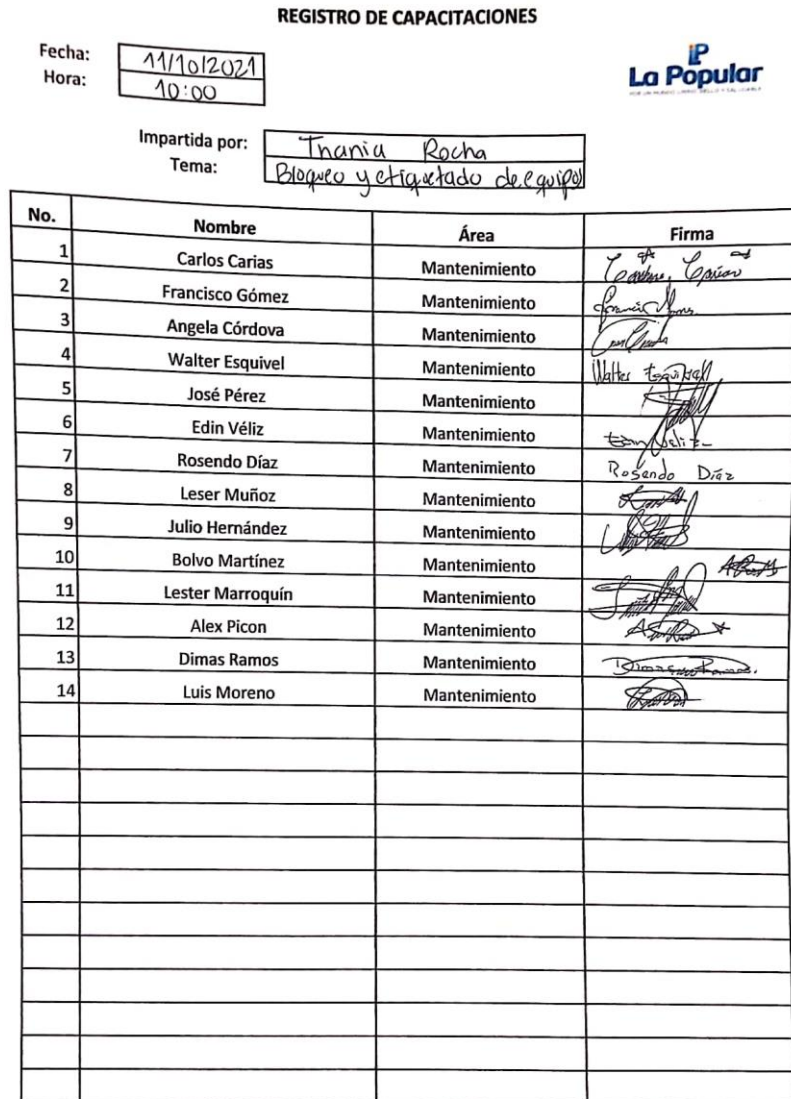 REGISTRO DE CAPACITACIONES
Fecha: 11/10/2021
Hora: 10:00
La Popular
Impartida por: Thania Rocha
Tema: Bloqueo y etiquetado de equipos
No. Nombre Área Firma
1 Carlos Carias Mantenimiento
2 Francisco Gómez Mantenimiento
3 Angela Córdova Mantenimiento
4 Walter Esquivel Mantenimiento Walter Esquivel
5 José Pérez Mantenimiento
6 Edin Véliz Mantenimiento Edin Veliz
7 Rosendo Díaz Mantenimiento Rosendo Díaz
8 Leser Muñoz Mantenimiento
9 Julio Hernández Mantenimiento
10 Bolvo Martínez Mantenimiento
11 Lester Marroquín Mantenimiento
12 Alex Picon Mantenimiento
13 Dimas Ramos Mantenimiento
14 Luis Moreno Mantenimiento